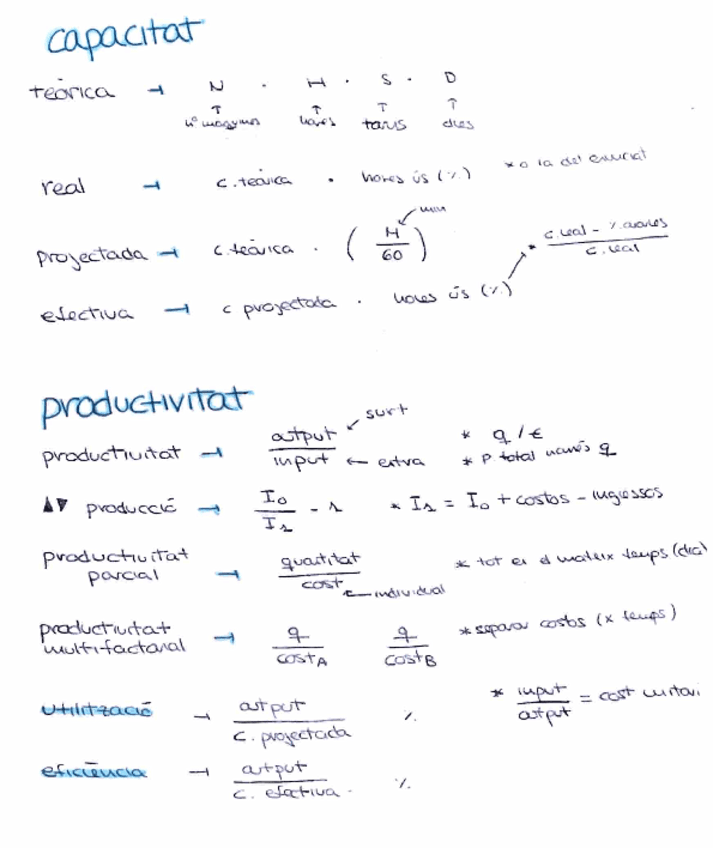 capacitat
teòrica → N · H · S · D
nº màquines hores torns dies
real → c. teòrica · hores ús (%) * o la del enunciat
projectada → c. teòrica · (M/60) min
efectiva → c projectada · hores ús (%) * c. real - % avaries / c. real
productivitat
productivitat → output/input surt entra * q/€ * P total només q
▲▼ producció → I₀/I₁ - 1 * I₁ = I₀ + costos - ingressos
productivitat parcial → quantitat/cost individual * tot en el mateix temps (dia)
productivitat multifactorial → q/cost A q/cost B * separar costos (x temps)
utilització → output/c. projectada % * input/output = cost unitari
eficiència → output/c. efectiva. %